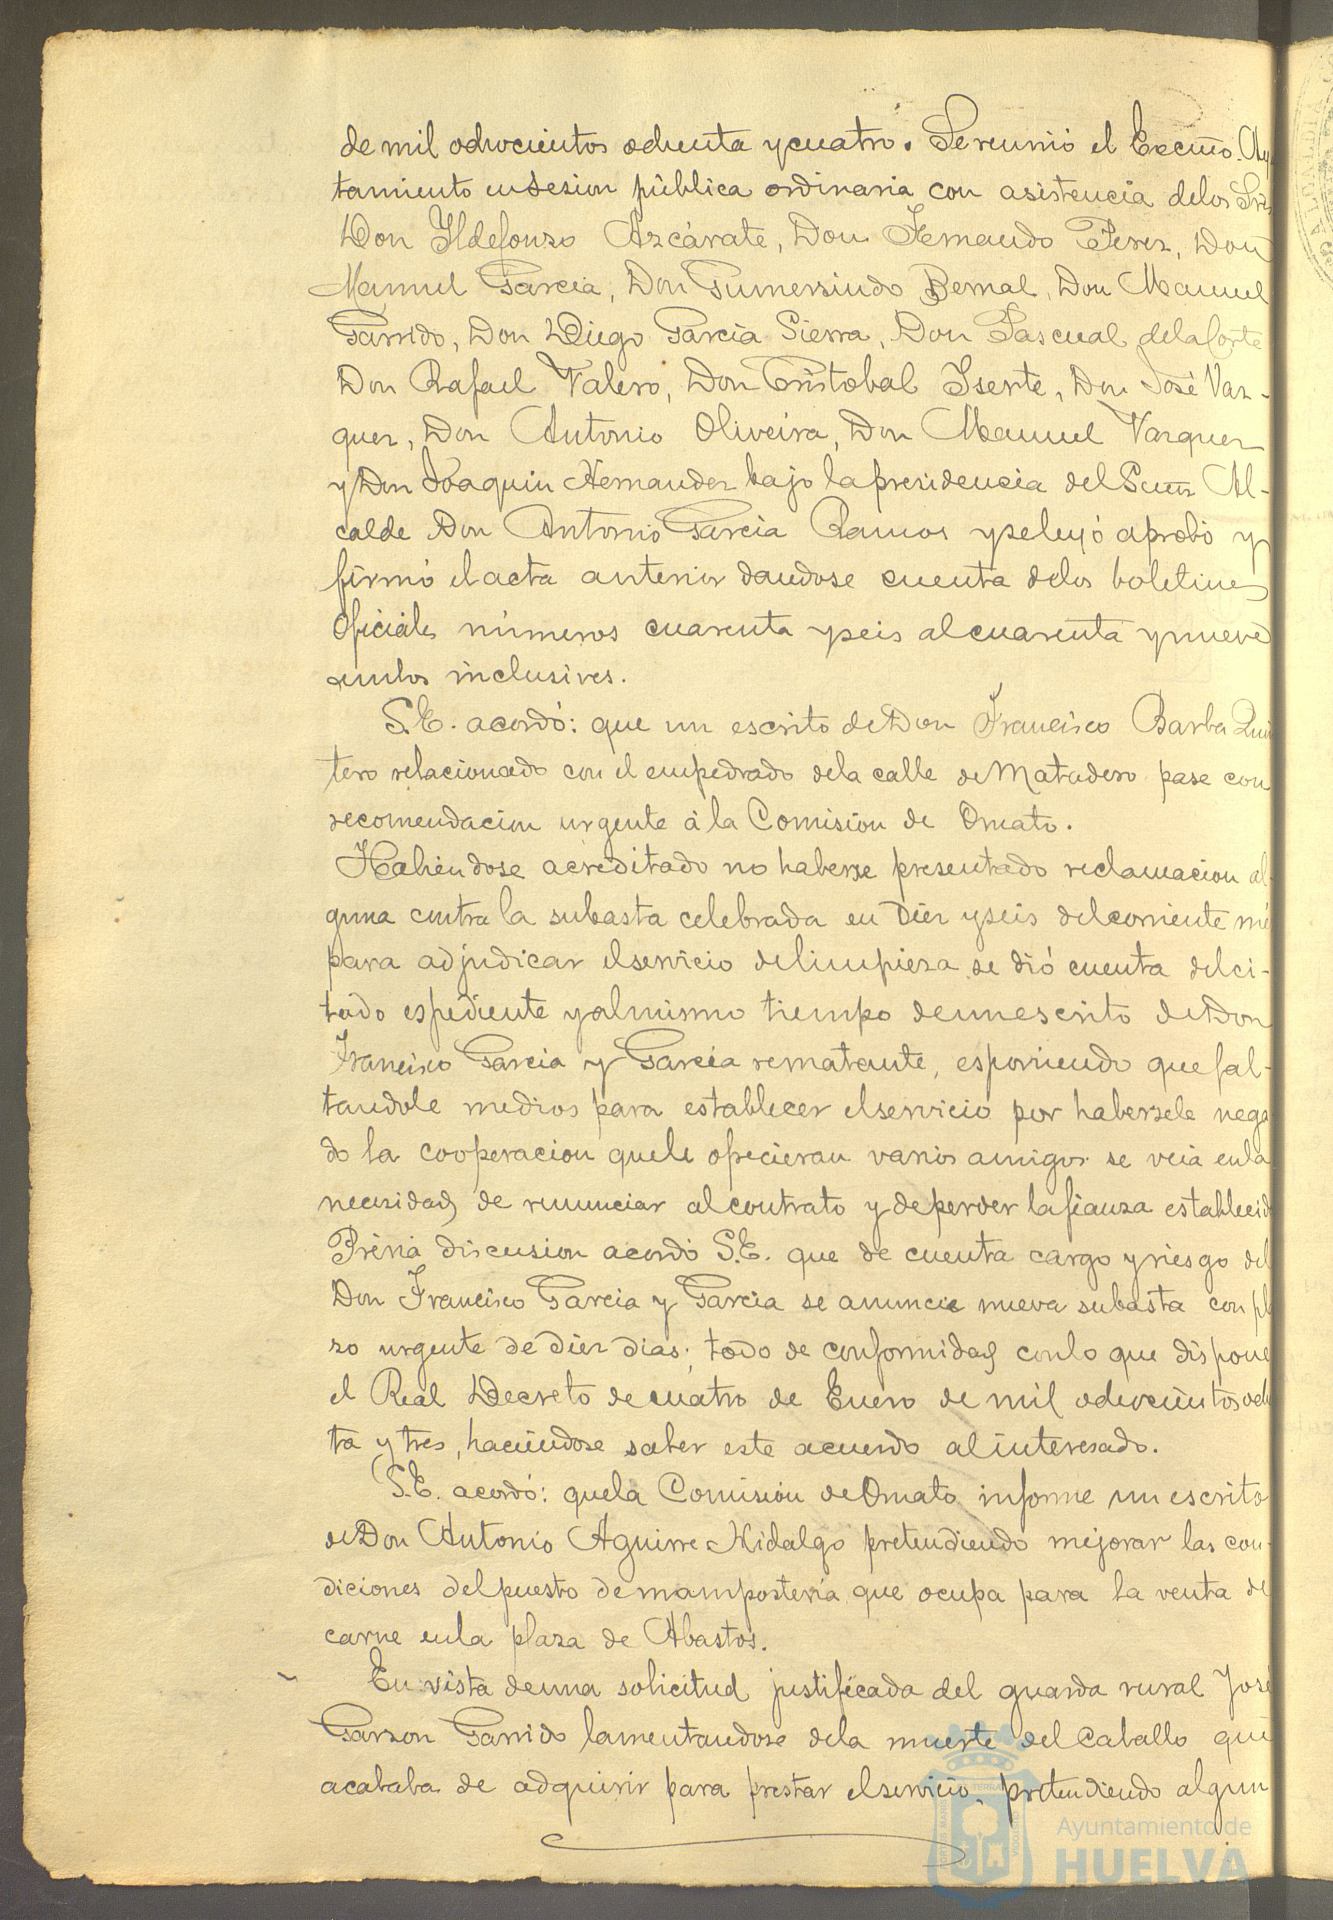 de mil ochocientos ochenta y cuatro. Se reunió el Excmo. Ayun
tamiento en sesion pública ordinaria con asistencia delos Sres
Don Yldefonzo Azcárate, Don Fernando Perez, Don
Manuel Garcia, Don Gumersindo Bernal, Don Manuel
Garrido, Don Diego Garcia Sierra, Don Pascual dela Corte
Don Rafael Valero, Don Cristobal Yserte, Don José Vaz-
quez, Don Antonio Oliveira, Don Manuel Vazquez
y Don Joaquin Hernandez bajo la presidencia del Señor Al-
calde Don Antonio Garcia Ramos y se leyó aprobó y
firmó el acta anterior dandose cuenta delos boletines
Oficiales números cuarenta y seis al cuarenta y nueve
ambos inclusives.
S.E. acordó: que un escrito de Don Francisco Barba Quin
tero relacionado con el empedrado dela calle de Matadero pase con
recomendacion urgente á la Comision de Ornato.
Habiendose acreditado no haberse presentado reclamacion al-
guna contra la subasta celebrada en Diez y seis del corriente me
para adjudicar el servicio de limpieza se dió cuenta del ci-
tado espediente y al mismo tiempo de un escrito de Don
Francisco Garcia y Garcia rematante, esponiendo que fal-
tandole medios para establecer el servicio por habersele nega
do la cooperacion que le ofrecieran varios amigos se veia en la
necesidad de renunciar al contrato y de perder la fianza establecid
Prévia discusion acordó S.E. que de cuenta cargo y riesgo del
Don Francisco Garcia y Garcia se anuncie nueva subasta con pl
zo urgente de diez dias; todo de conformidad con lo que dispone
el Real Decreto de cuatro de Enero de mil ochocientos och
ta y tres, haciendose saber este acuerdo al interesado.
S.E. acordó: que la Comision de Ornato informe un escrito
de Don Antonio Aguirre Hidalgo pretendiendo mejorar las con-
diciones del puesto de mamposteria que ocupa para la venta de
carne en la plaza de Abastos.
En vista de una solicitud justificada del guarda rural José
Garzon Garrido lamentandose dela muerte del Caballo que
acababa de adquirir para prestar el servicio, pretendiendo algun
Ayuntamiento de
HUELVA